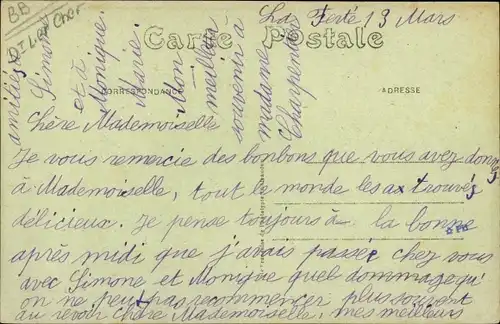 BB
La Ferté 13 Mars
Carte Postale
CORRESPONDANCE
ADRESSE
Chère Mademoiselle
Je vous remercie des bonbons que vous avez donnés
à Mademoiselle, tout le monde les ax trouvés
délicieux. Je pense toujours à la bonne
après midi que j'avais passée chez vous
avec Simone et Monique quel dommage qu'
on ne peut pas recommencer plus souvent
au revoir Chère Mademoiselle, mes meilleurs
amitiés
Simone
et à
Monique.
Marie.
Mon
meilleur
souvenir à
madame
Charpentier